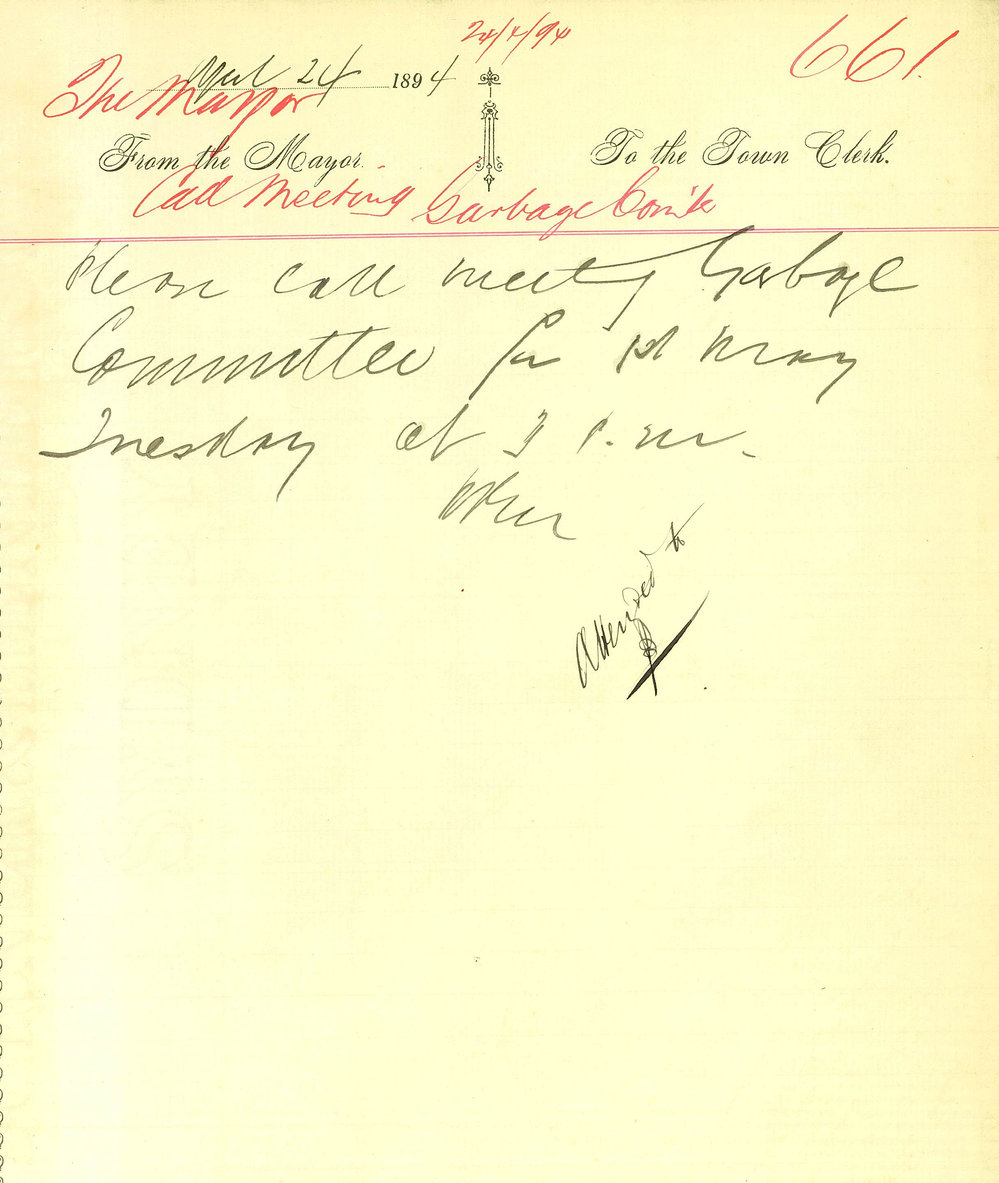 24/4/94
661.
April 24 1894
The Mayor
From the Mayor. To the Town Clerk.
Call Meeting Garbage Comte
Please call meeting Garbage
Committee for 1st May
Tuesday at 3 p.m.
Attended to